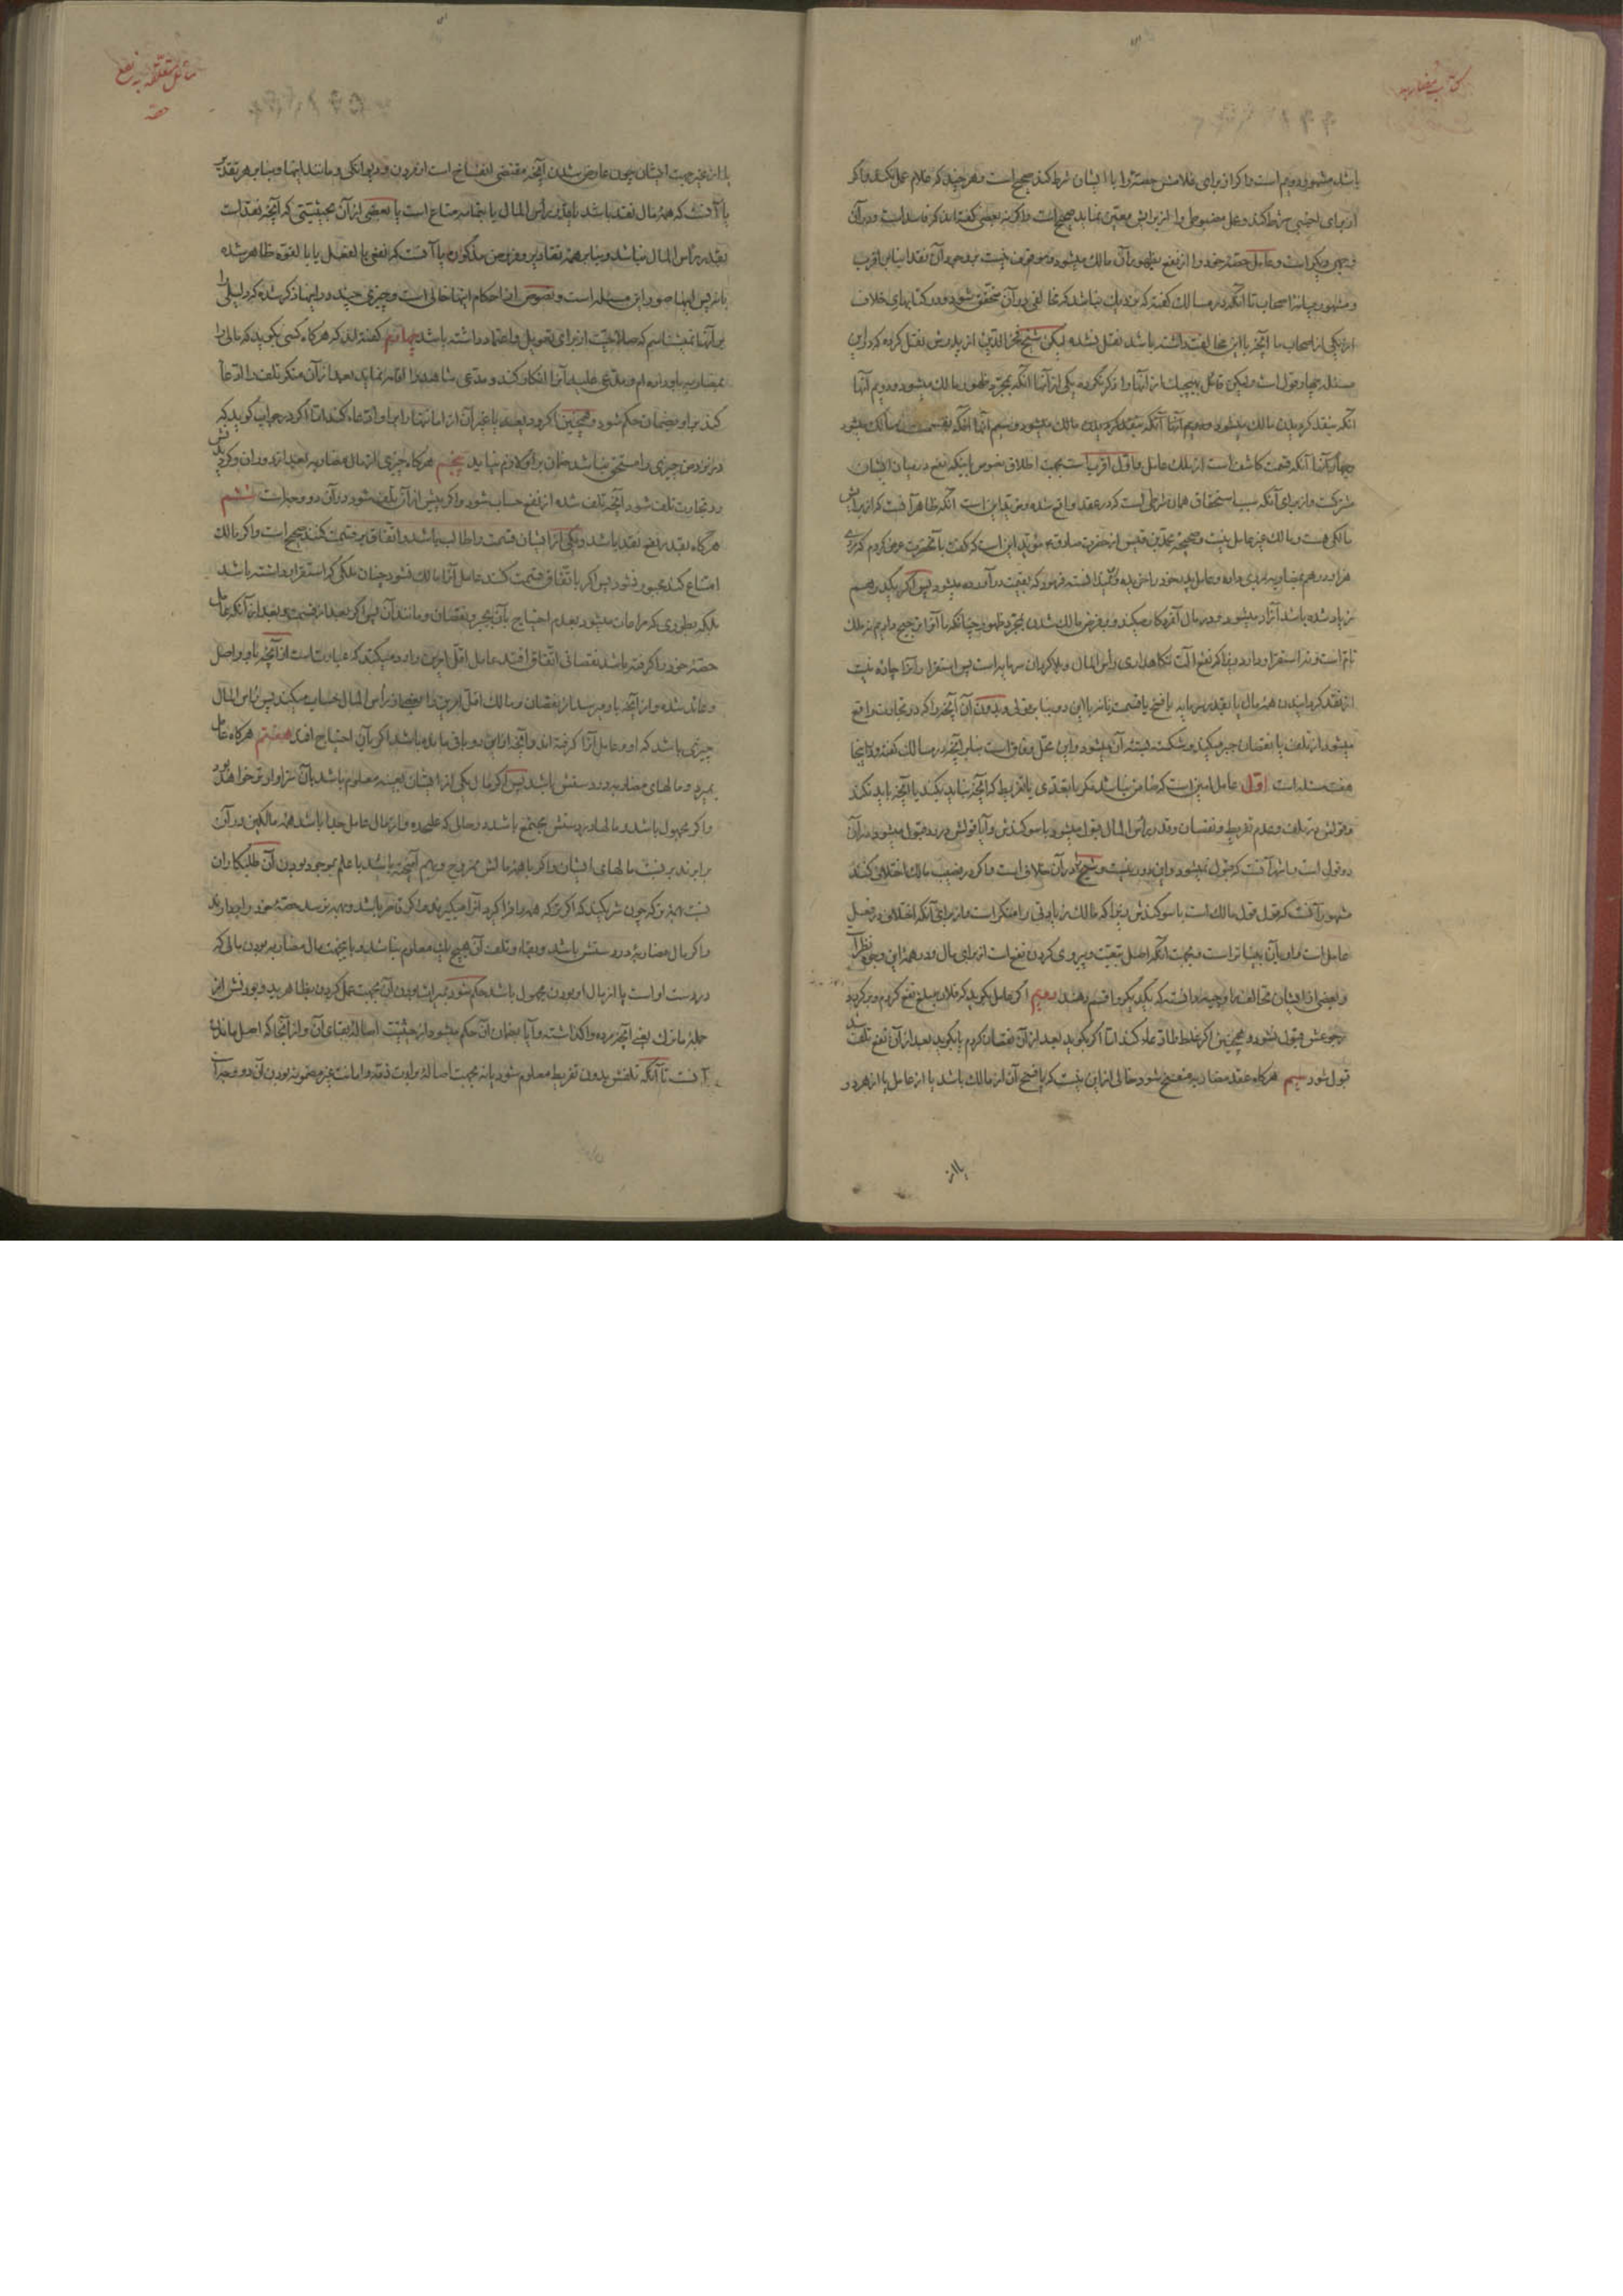 کتاب مضاربه
باشد مشهور دویم است و اگر از برای غلامش حصهٔ را با ایشان شرط کند صحیح است و هر چند که غلام عمل نکند و اگر
از برای اجنبی شرط کند و عمل مضبوطی را از برایش معین نماید صحیح است و اگر نه بعضی گفته‌اند که فاسد است و در آن
وجهی دیگر است و عامل حصهٔ خود را از نفع بظهور آن مالک میشود و موقوف نیست بر وجود آن نقدا بنا بر اقرب
و مشهور میانهٔ اصحاب تا آنکه در مسالک گفته که نزدیک نباشد که مخالفی در آن متحقق شود و در کتابهای خلاف
از یکی از اصحاب ما آنچه با این مخالفت داشته باشد نقل نشده لیکن شیخ فخر الدین از پدرش نقل کرده که در این
مسئله چهار قول است و لیکن قائل بهیچیک از آنها را ذکر نکرده یکی از آنها آنکه بمجرد ظهور مالک میشود و دویم آنها
آنکه بنقد کردیدن مالک میشود و سیم آنها آنکه بقسمت مالک میشود
چهارم آنها آنکه قسمت کاشف است از ملک عامل و اول اقرب است بجهت اطلاق نصوص باینکه نفع در میان ایشان
شرکت و از برای آنکه سبب استحقاق همان شرطی است که در عقد واقع شده و مؤید این است آنکه ظاهر آنست که از برایش
مالکی هست و مالک غیر عامل نیست و صحیحهٔ محمد بن قیس از حضرت صادق ع مؤید این است که گفت بآنحضرت عرض کردم که مردی
هزار درهم بمضاربه بمردی داده و عامل پدر خود را خریده و ندانسته فرمود که بقیمت در آورده میشود پس اگر یکدرهم
زیاد شده باشد آزاد میشود و در مال آنمرد کار میکند و بفرض مالک شدن بمجرد ظهور چنانکه ما آنرا ترجیح دادیم نه ملک
تام است و نه استقرار دارد زیرا که نفع آلت نگاهداری رأس المال و تلافی کردن سرمایه است پس استقرار آنرا چاره نیست
از نقد کردانیدن همهٔ مال یا بقدر سرمایه با فسخ یا قسمت یا نه با این دو بنا بر قولی و بدون آن آنچه را که در تجارت واقع
میشود از تلف یا نقصان جبر میکند و شکسته بسته آن میشود و این محل وفاق است بنا بر آنچه در مسالک گفته و در اینجا
هفت مسئله است اول عامل امین است که ضامن نباشد مگر با تعدی یا تفریط که آنچه نباید بکند یا آنچه باید نکند
و قولش در تلف و عدم تفریط و نقصان و قدر رأس المال قبول میشود با سوکندش و آیا قولش در رد قبول میشود در آن
دو قول است و اشهر آنست که قبول نمیشود و این دور نیست و شیخ را در آن خلاف است و اگر در نصیب مالک اختلاف کنند
مشهور آنست که قول قول مالک است با سوکندش زیرا که مالک زیادتی را منکر است و از برای آنکه اختلاف در فعل
عامل است و او بآن بیناتر است و بجهت آنکه اصل تبعیت و پیروی کردن نفع است از برای مال و در همهٔ این وجوه نظر است
و بعضی از ایشان تحالف را ترجیح داده‌اند که یکدیگر را قسم دهند دویم اگر عامل بگوید که فلان مبلغ نفع کردم و برگردد
رجوعش قبول نشود و همچنین اگر غلط را ادعا کند اما اگر بگوید بعد از آن نقصان کردم یا بگوید بعد از آن نفع تلف شد
قبول شود سیم هر گاه عقد مضاربه منفسخ شود خالی از این نیست که یا فسخ آن از مالک باشد یا از عامل یا از هر دو
یا از
مسائل متعلقه به نفع
حصه
یا از غیر جهت ایشان چون عارض شدن آنچه مقتضی انفساخ است از مردن و دیوانکی و مانند اینها و بنا بر هر تقدیر
یا آنست که همهٔ مال نقد باشد یا بقدر رأس المال یا جملهٔ متاع است یا بعضی از آن بحیثیتی که آنچه نقد است
بقدر رأس المال نباشد و بنا بر همهٔ تقادیر و فروض مذکوره یا آنست که نفعی بالفعل یا بالقوه ظاهر شده
یا نه پس اینها صور این مسئله است و نصوص از احکام اینها خالی است و چیزی چند در اینها ذکر شده که دلیلی را
بر آنها نمیشناسم که صلاحیت از برای تعویل و اعتماد داشته باشد چهارم گفته‌اند که هر گاه کسی بگوید که مالی را
بمضاربه باو داده‌ام و مدعی علیه آنرا انکار کند و مدعی شاهد را اقامه نماید بعد از آن منکر تلف را ادعا
کند بر او بضمان حکم شود و همچنین اگر ودیعه یا غیر آن از امانتها را بر او ادعا کند اما اگر در جواب گوید که
در نزد من چیزی را مستحق نباشد ضمان بر او لازم نیاید پنجم هر گاه چیزی از مال مضاربه بعد از دوران و کردیدنش
در تجارت تلف شود آنچه تلف شده از نفع حساب شود و اگر پیش از آن تلف شود در آن دو وجه است ششم
هر گاه بقدر نفع نقد باشد و یکی از ایشان قسمت را طالب باشد و اتفاق بر قسمت کنند صحیح است و اگر مالک
امتناع کند مجبور نشود پس اگر باتفاق قسمت کنند عامل آنرا مالک نشود چنان ملکی که استقرار داشته باشد
بلکه بطوری که مراعات میشود بعدم احتیاج بآن بجبر نقصان و مانند آن پس اگر بعد از قسمت و بعد از آنکه عامل
حصهٔ خود را گرفته باشد نقصانی اتفاق افتد عامل اقل امرین را رد میکند که عبارت است از آنچه باو واصل
و عائد شده و از آنچه باو میرسد از نقصان و مالک اقل امرین را از رأس المال حساب میکند پس رأس المال
چیزی باشد که او و عامل آنرا گرفته‌اند و آنچه از این دو باقی مانده باشد اگر بآن احتیاج افتد هفتم هر گاه عامل
بمیرد و مالهای مضاربه در دستش باشد پس اگر مال یکی از ایشان بعینه معلوم باشد بآن سزاوارتر خواهد بود
و اگر مجهول باشد و مالها در دستش مجتمع باشد در حالی که علیحده و از مال عامل جدا باشد همهٔ مالکین در آن
برابرند بر نسبت مالهای ایشان و اگر با همهٔ مالش ممزوج و بهم آمیخته باشد با علم بموجود بودن آن طلبکاران
و اگر مال مضاربه در دستش باشد و بقاء و تلف آن هیچ یک معلوم نباشد و بهیچ جهت مال مضاربه بودن مالی که
در دست او است یا از مال او بودن مجهول باشد حکم شود بمیراث بودن آن بجهت عمل کردن بظاهر ید و بودنش از